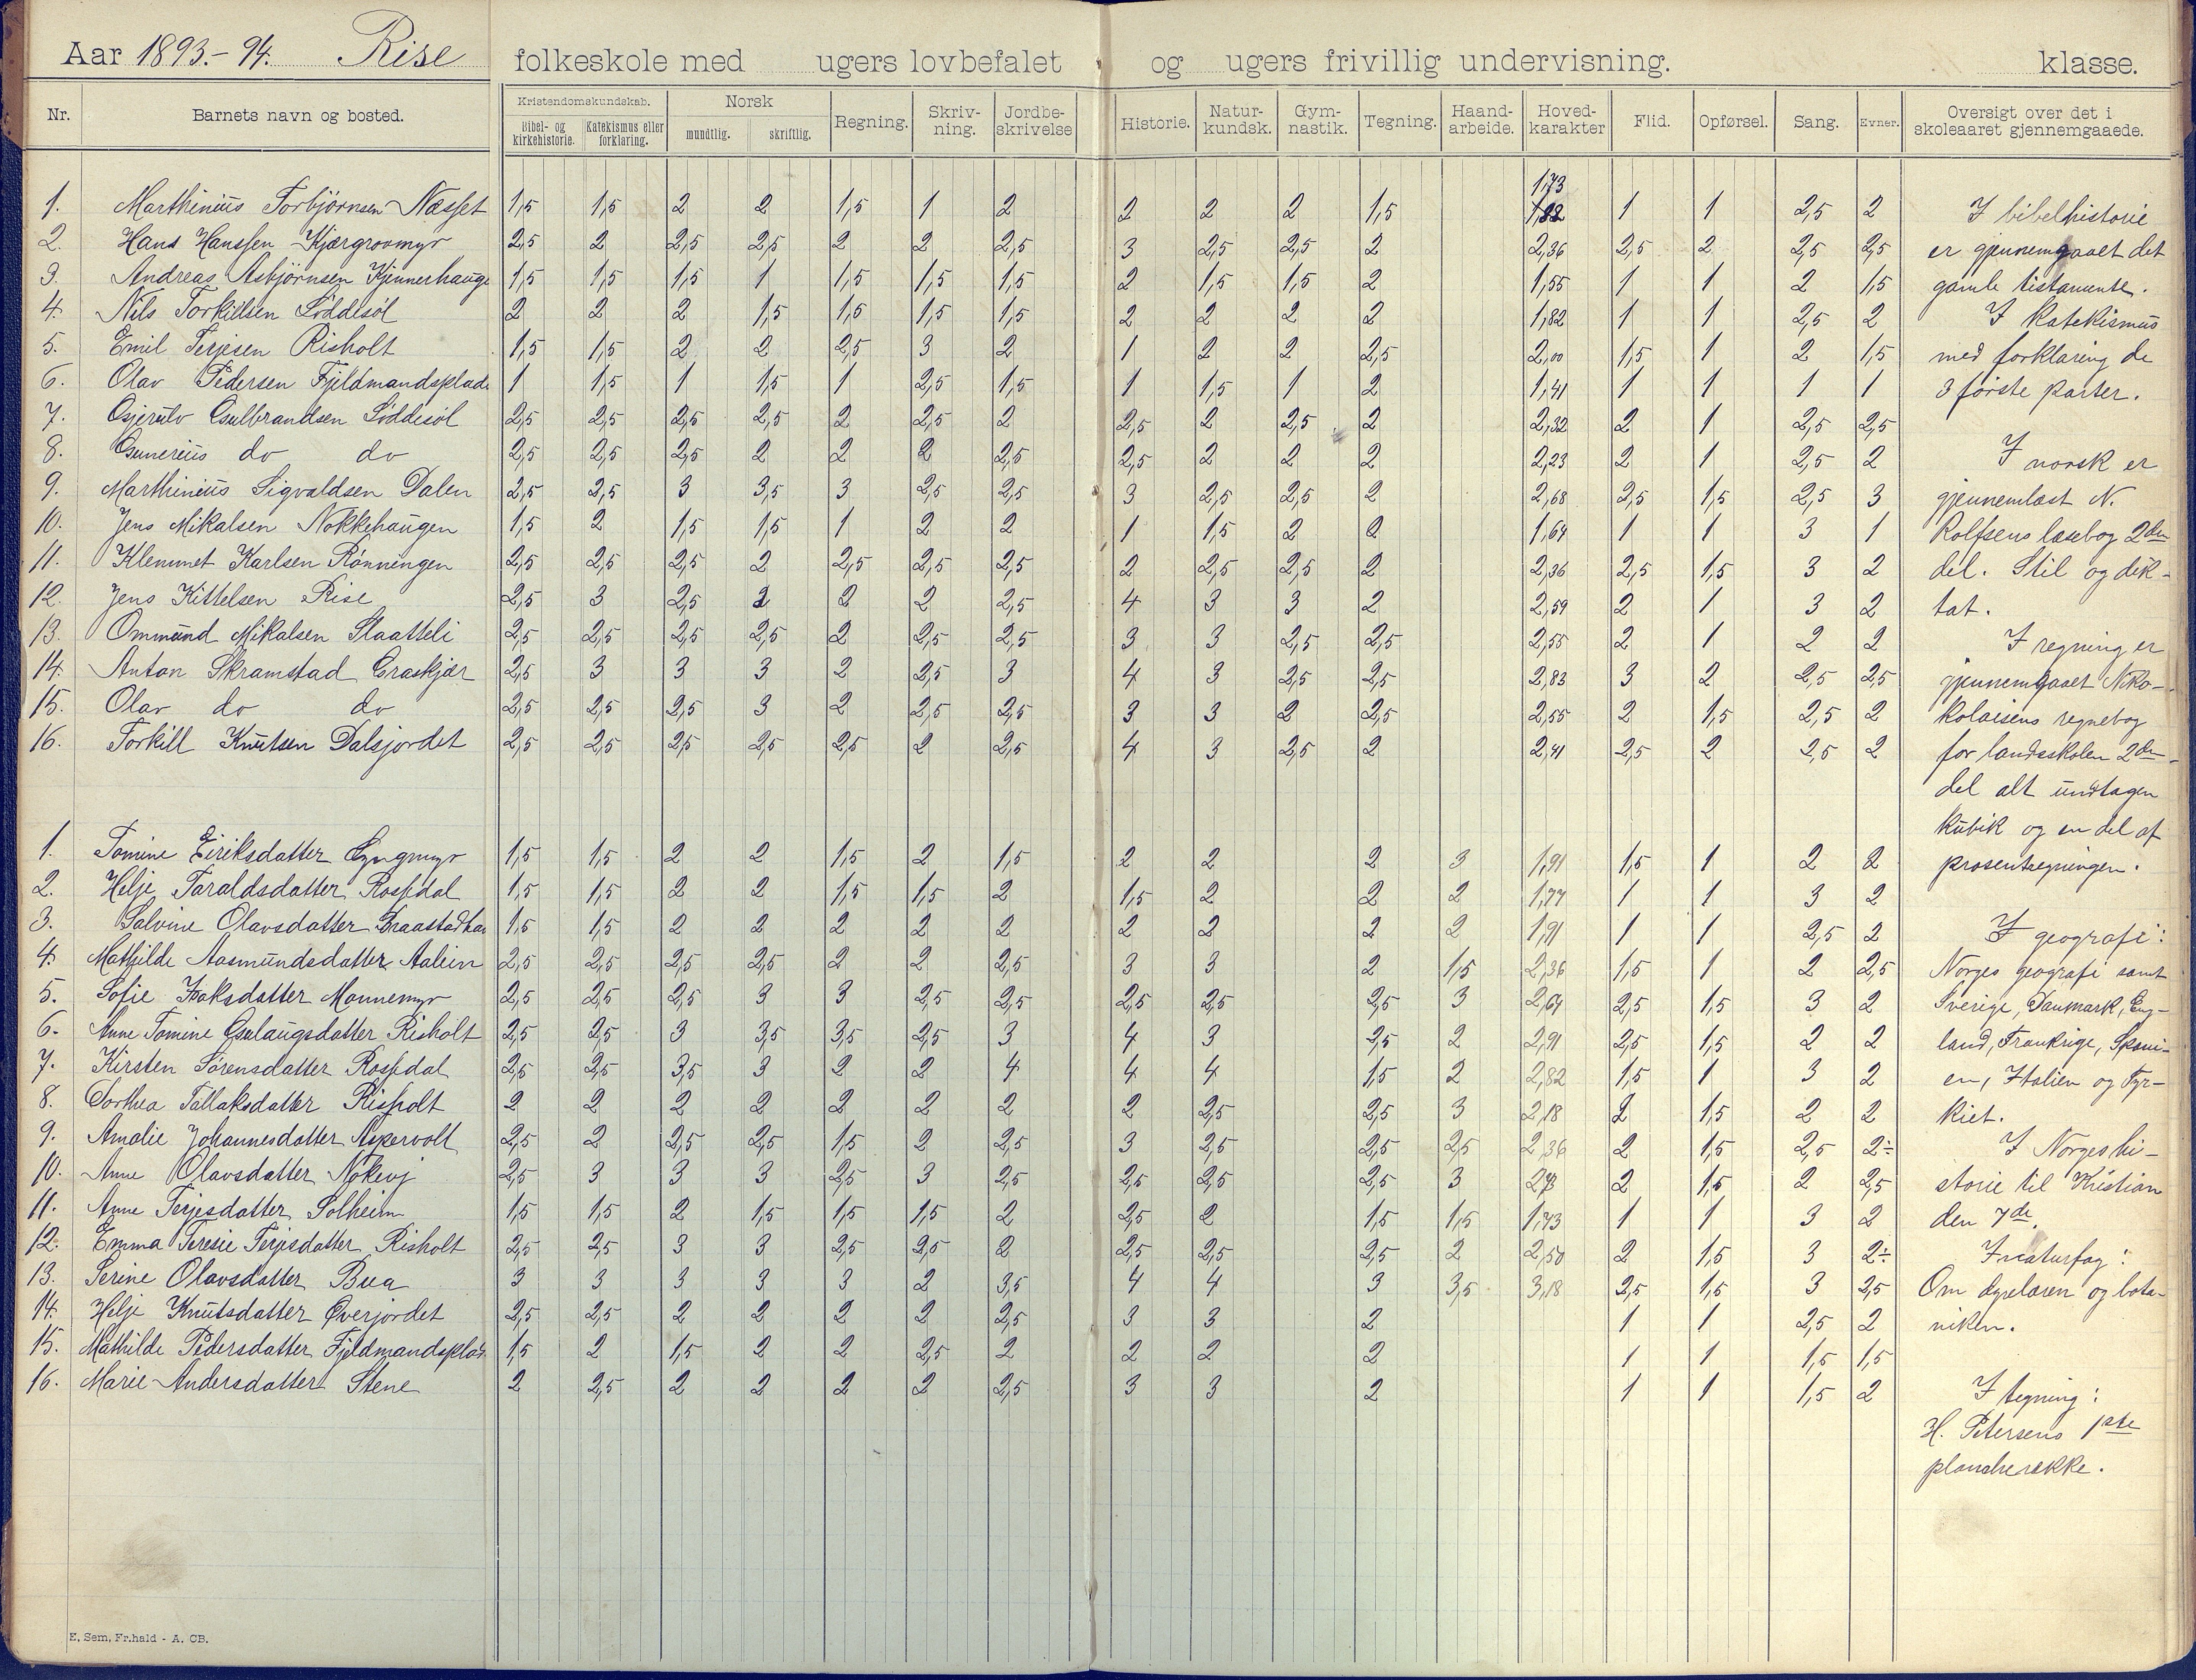 Aar 1893.-94. Rise folkeskole med ugers lovbefalet og ugers frivillig undervisning. klasse.
Nr. Barnets navn og bosted. Kristendomskundskab. Norsk Regning. Skriv-ning. Jordbe-skrivelse Historie. Natur-kundsk. Gym-nastik. Tegning. Haand-arbeide. Hoved-karakter Flid. Opførsel. Sang. Evner. Oversigt over det i skoleaaret gjennemgaaede.
Bibel- og kirkehistorie. Katekismus eller forklaring. mundtlig. skriftlig.
1. Marthinius Torbjørnsen Næsset 1,5 1,5 2 2 1,5 1 2 2 2 2 1,5 1,73 1,82 1 1 2,5 2 I bibelhistorie
2. Hans Hanssen Kjærgrovmyr 2,5 2 2,5 2,5 2 2 2,5 3 2,5 2,5 2 2,36 2,5 2 2,5 2,5 er gjennemgaaet det
3. Andreas Asbjørnsen Kjennerhauge 1,5 1,5 1,5 1 1,5 1,5 1,5 2 1,5 1,5 2 1,55 1 1 2 1,5 gamle testamente.
4. Nils Torkildsen Løddesøl 2 2 2 1,5 1,5 1,5 1,5 2 2 2 2 1,82 1 1 2,5 2 I katekismus
5. Emil Terjesen Risholt 1,5 1,5 2 2 2,5 3 2 1 2 2 2,5 2,00 1,5 1 2 1,5 med forklaring de
6. Olav Pedersen Fjeldmandsplads 1 1,5 1 1,5 1 2,5 1,5 1 1,5 1 2 1,41 1 1 1 1 3 første parter.
7. Gjerulv Gulbrandsen Løddesøl 2,5 2,5 2,5 2,5 2 2,5 2 2,5 2 2,5 2 2,32 2 1 2,5 2,5
8. Gunerius do do 2,5 2,5 2,5 2 2 2 2,5 2,5 2 2 2 2,23 2 1 2,5 2 I norsk er
9. Marthinius Sigvaldsen Dalen 2,5 2,5 3 3,5 3 2,5 2,5 3 2,5 2,5 2 2,68 2,5 1,5 2,5 3 gjennemlæst N.
10. Jens Mikalsen Nokkehaugen 1,5 2 1,5 1,5 1 2 2 1 1,5 2 2 1,64 1 1 3 1 Rolfsens læsebog 2den
11. Klemmet Karlsen Rønningen 2,5 2,5 2,5 2 2,5 2,5 2,5 2 2,5 2,5 2 2,36 2,5 1,5 3 2 del. Stil og dik-
12. Jens Kittelsen Rise 2,5 3 2,5 2 2 2 2,5 4 3 3 2 2,59 2 1 3 2 tat.
13. Ommund Mikalsen Slaatteli 2,5 2,5 2,5 2,5 2 2,5 2,5 3 3 2,5 2,5 2,55 2 1 2 2 I regning er
14. Anton Skramstad Graskjær 2,5 3 3 3 2 2,5 3 4 3 2,5 2,5 2,83 3 2 2,5 2,5 gjennemgaaet Niko-
15. Olav do do 2,5 2,5 2,5 3 2 2,5 2,5 3 3 2 2,5 2,55 2 1,5 2,5 2 kolaisens regnebog
16. Torkill Knutsen Dalsjordet 2,5 2,5 2,5 2,5 2,5 2 2,5 4 3 2,5 2 2,41 2,5 2 2,5 2 for landsskolen 2den
del alt undtagen
kubik og en del af
1. Tomine Eiriksdatter Lyngmyr 1,5 1,5 2 2 1,5 2 1,5 2 2 2 3 1,91 1,5 1 2 2 prosentregningen.
2. Helje Taraldsdatter Rossedal 1,5 1,5 2 2 1,5 1,5 2 1,5 2 2 2 1,77 1 1 3 2
3. Salvine Olavsdatter Braastadha 1,5 1,5 2 2 2 2 2 2 2 2 2 1,91 1 1 2,5 2 I geografi:
4. Mathilde Aasmundsdatter Aalien 2,5 2,5 2,5 2,5 2 2 2,5 3 3 2 1,5 2,36 1,5 1 2 2,5 Norges geografi samt
5. Sofie Isaksdatter Monnemyr 2,5 2,5 2,5 3 3 2,5 2,5 2,5 2,5 2,5 3 2,64 2,5 1,5 3 2 Sverige, Danmark, Eng-
6. Anne Tomine Gulaugsdatter Risholt 2,5 2,5 3 3,5 3,5 2,5 3 4 3 2,5 2 2,91 2,5 1,5 2 2 land, Frankrige, Spani-
7. Kirsten Sørensdatter Rossedal 2,5 2,5 3,5 3 2 2 4 4 4 1,5 2 2,82 1,5 1 3 2 en, Italien og Tyr-
8. Dorthea Tallaksdatter Risholt 2 2 2 2 2 2 2 2 2,5 2,5 3 2,18 2 1,5 2 2 kiet.
9. Amalie Johannesdatter Aspervolt 2,5 2 2,5 2,5 1,5 2 2,5 3 2,5 2,5 2,5 2,36 2 1,5 2,5 2÷ I Norges hi-
10. Anne Olavsdatter Nokevj 2,5 3 3 3 2,5 3 2,5 2,5 2,5 2,5 3 2,73 2 1,5 2 2,5 storie til Kristian
11. Anne Terjesdatter Solheim 1,5 1,5 2 1,5 1,5 1,5 2 2,5 2 1,5 1,5 1,73 1 1 3 2 den 7de.
12. Emma Teresie Terjesdatter Risholt 2,5 2,5 3 3 2,5 2,5 2 2,5 2,5 2,5 2 2,50 2 1,5 3 2÷ I naturfag:
13. Serine Olavsdatter Bua 3 3 3 3 3 2 3,5 4 4 3 3,5 3,18 2,5 1,5 3 2,5 Om dyrelæren og bota-
14. Helje Knutsdatter Øverjordet 2,5 2,5 2 2 2 2 2,5 3 3 2 1 1 2,5 2 niken.
15. Mathilde Pedersdatter Fjeldmandsplads 1,5 2 1,5 2 2 2,5 2 2 2 2 1 1 1,5 1,5
16. Marie Andersdatter Stene 2 2,5 2 2 2 2 2,5 3 3 2 1 1 1,5 2 I tegning:
H. Petersens 1ste
plancherække.
E. Sem, Fr.hald - A. CB.